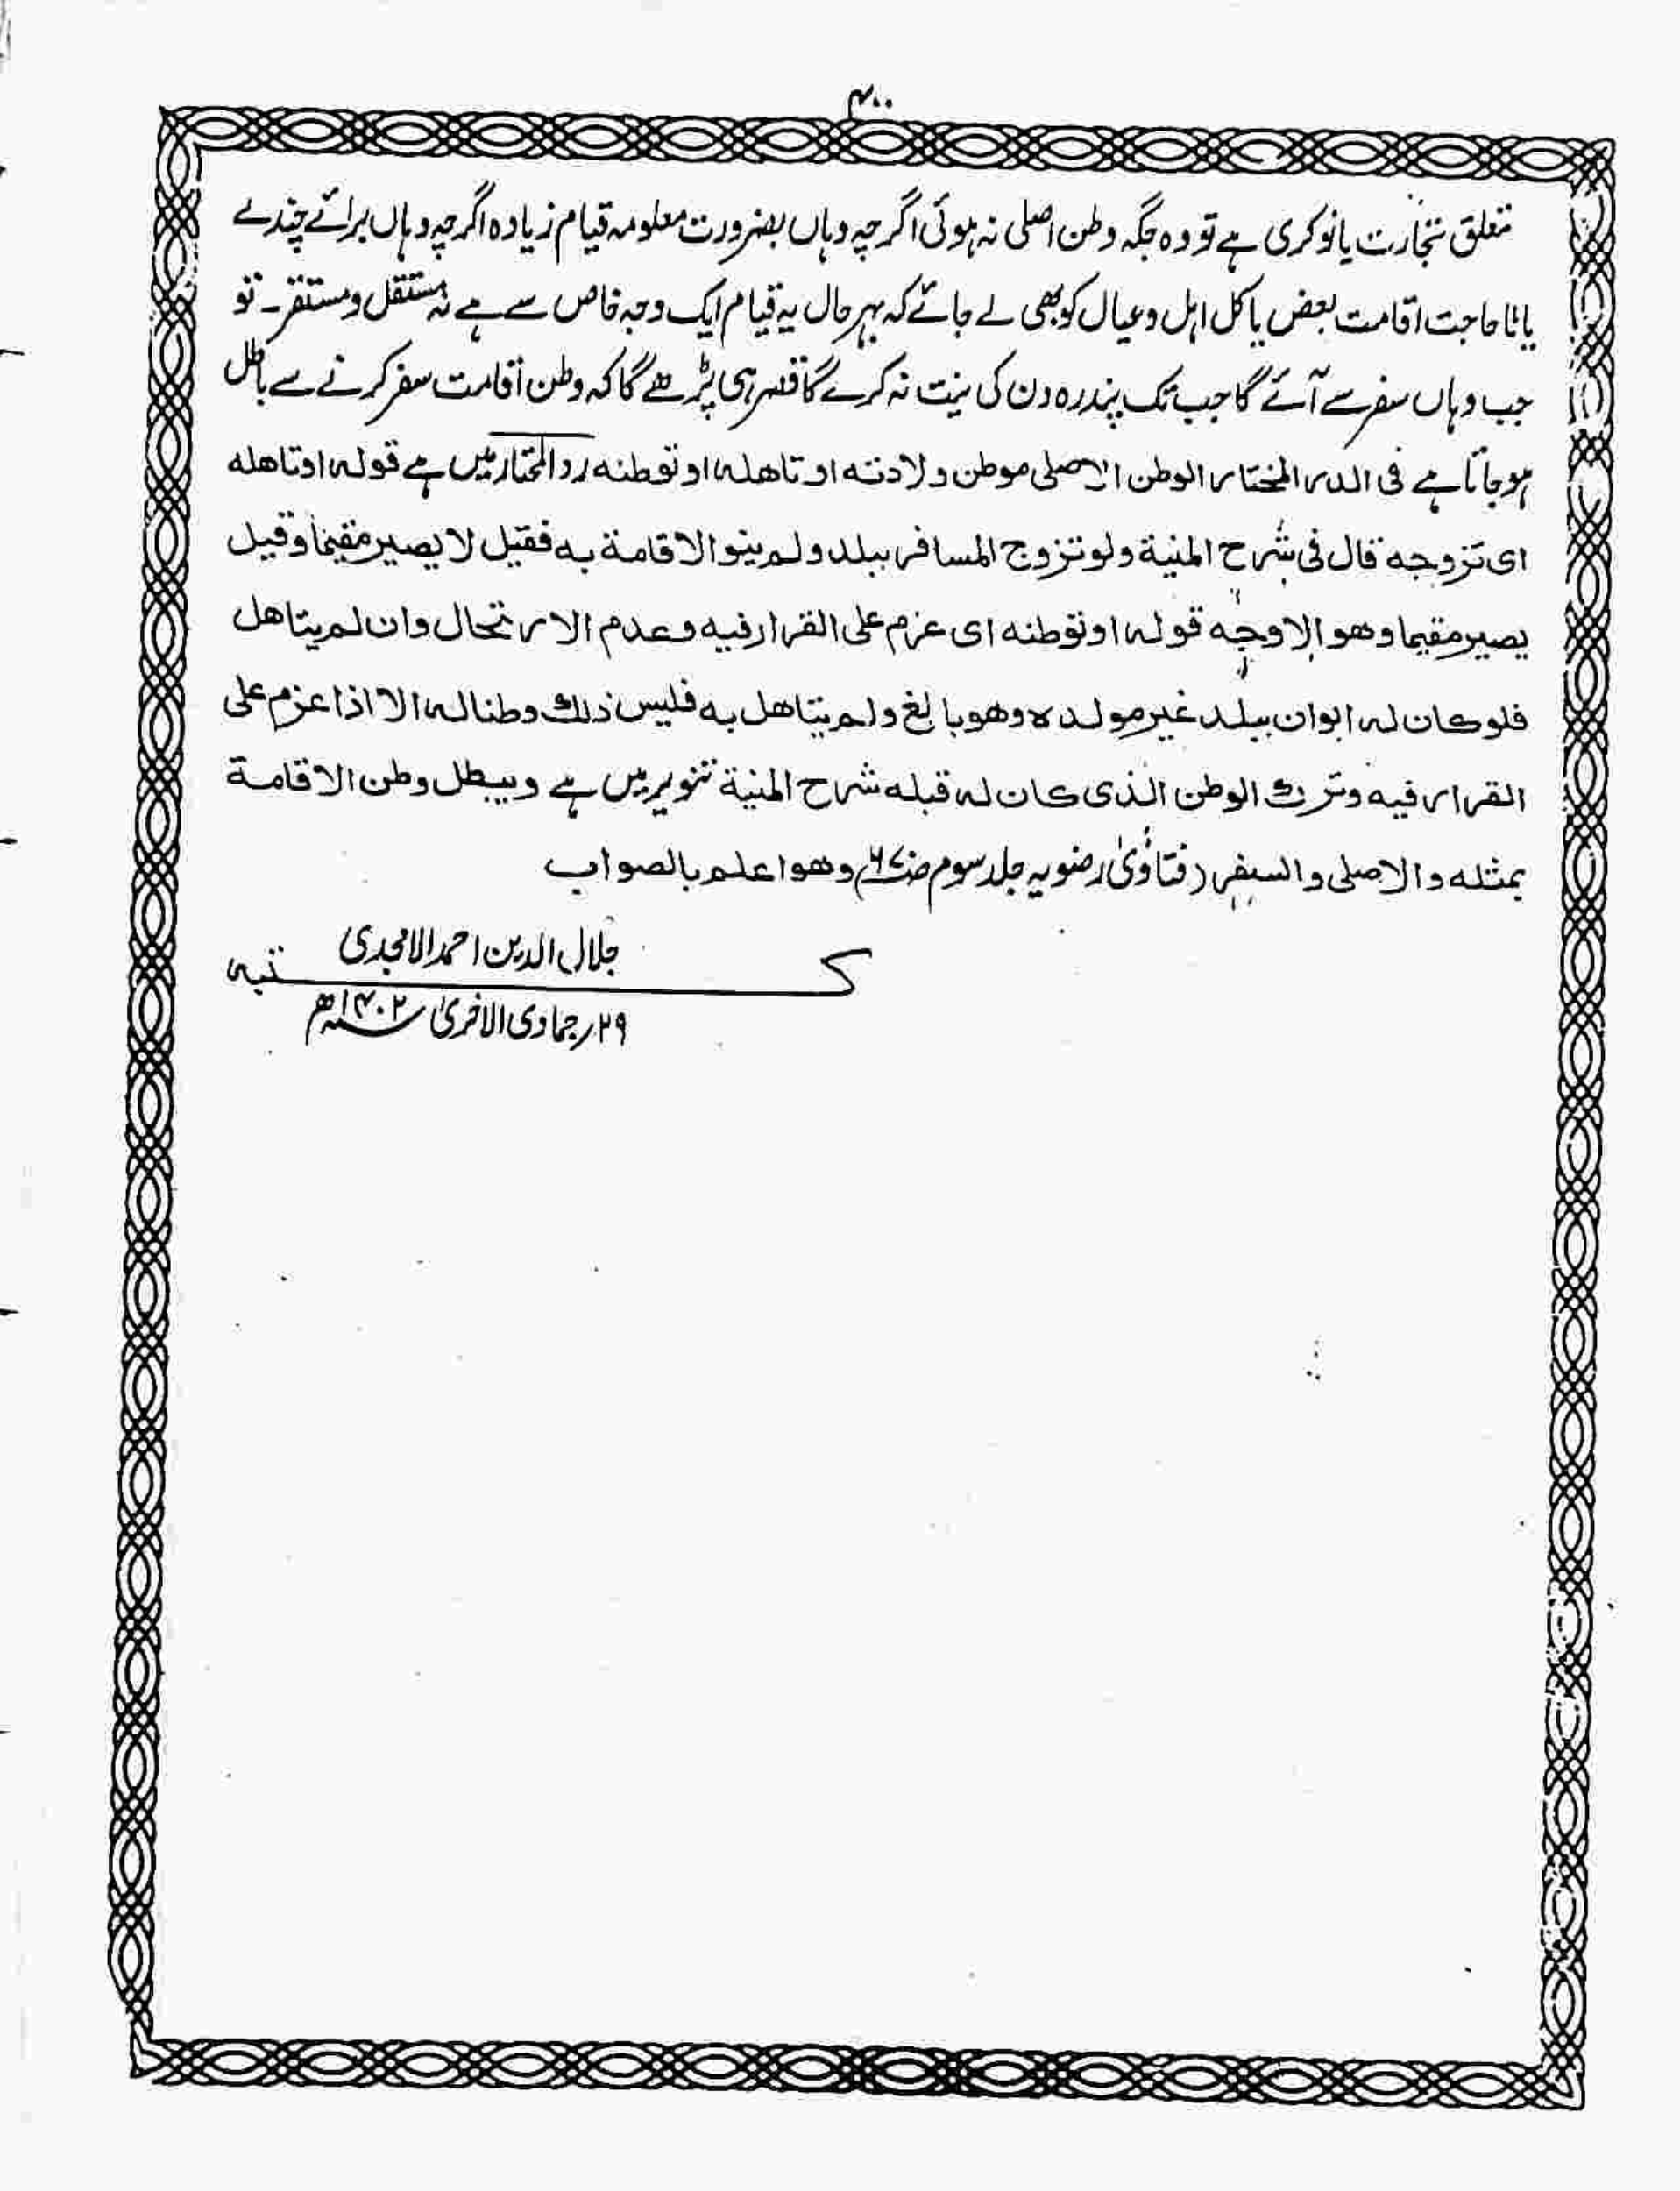 ۴۰۰
تعلق تجارت یا نوکری ہے تو وہ جگہ وطن اصلی نہ ہوئی اگرچہ وہاں بضرورت معلومہ قیام زیادہ اگرچہ وہاں برائے چندے
یا تا حاجت اقامت بعض یا کل اہل و عیال کو بھی لے جائے کہ بہر حال یہ قیام ایک وجہ خاص سے ہے نہ مستقل و مستقر۔ تو
جب وہاں سفر سے آئے گا جب تک پندرہ دن کی نیت نہ کرے گا قصر ہی پڑھے گا کہ وطن اقامت سفر کرنے سے باطل
ہو جاتا ہے فی الدر المختار الوطن الاصلی موطن ولادته او تاهله او توطنه ردالمحتار میں ہے قوله او تاهله
ای تزوجه قال فی شرح المنیة ولو تزوج المسافر ببلد ولم ینو الاقامة به فقیل لا یصیر مقیما وقیل
یصیر مقیما وهو الاوجه قوله او توطنه ای عزم علی القرار فیه وعدم الارتحال وان لم یتاهل
فلو کان له ابوان ببلد غیر مولده وهو بالغ ولم یتاهل به فلیس ذلك وطنا له الا اذا عزم علی
القرار فیه وترك الوطن الذی کان له قبله شرح المنیة تنویر میں ہے ویبطل وطن الاقامة
بمثله والاصلی والسفر (فتاوٰی رضویہ جلد سوم ص۶۷۰) وهو اعلم بالصواب
جلال الدین احمد الامجدی
کتبہ
۲۹؍ جمادی الاخریٰ ۱۴۰۲ھ